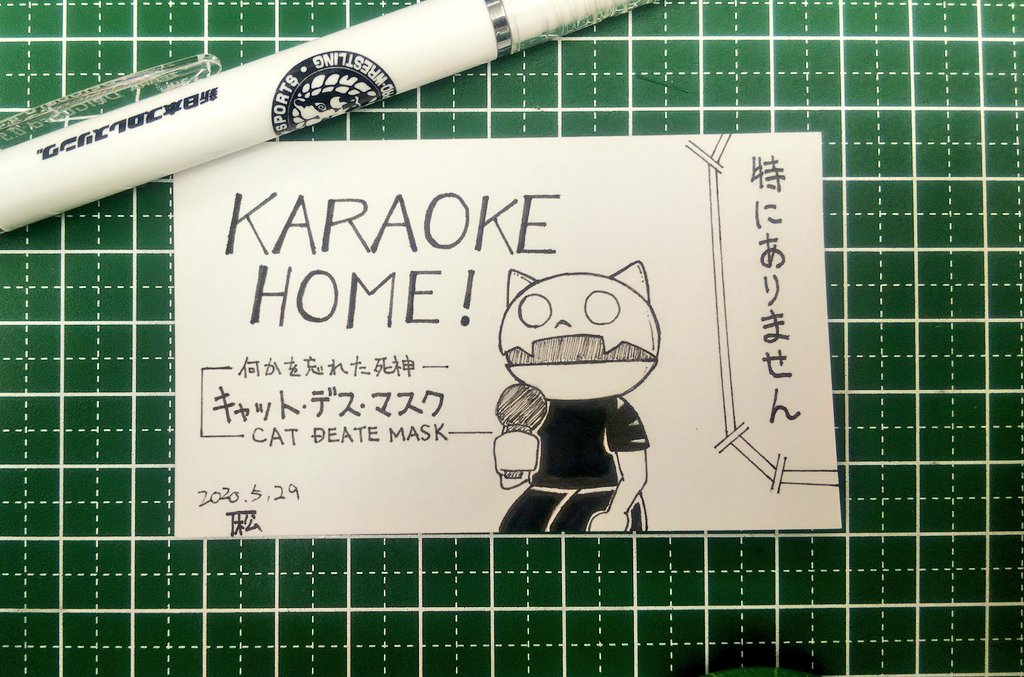 新日本プロレスリング
WRESTLING
SPORTS
KARAOKE
HOME!
何かを忘れた死神
キャット・デス・マスク
CAT DEATE MASK
2020.5.29
特にありません